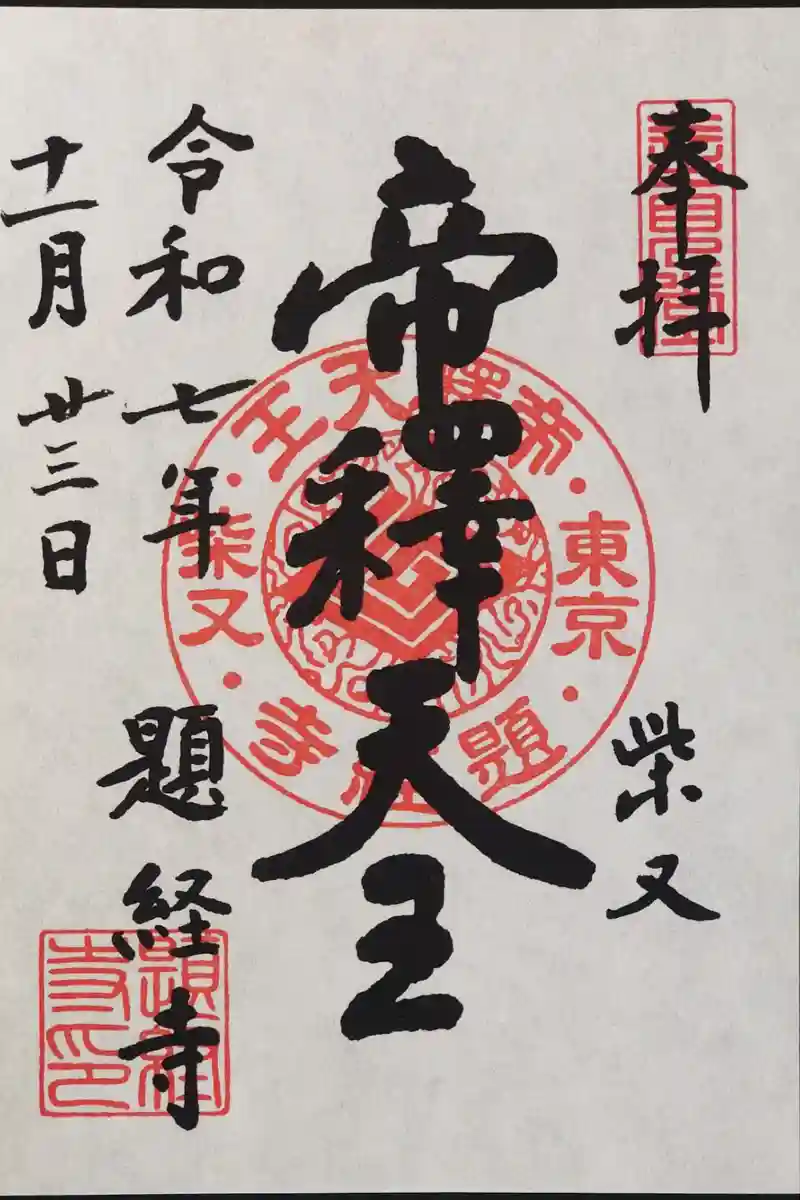 奉拝
柴又
帝釋天王
令和七年
題経寺
十一月廿三日
帝釋天王
東京
題経寺
柴又
題経寺印